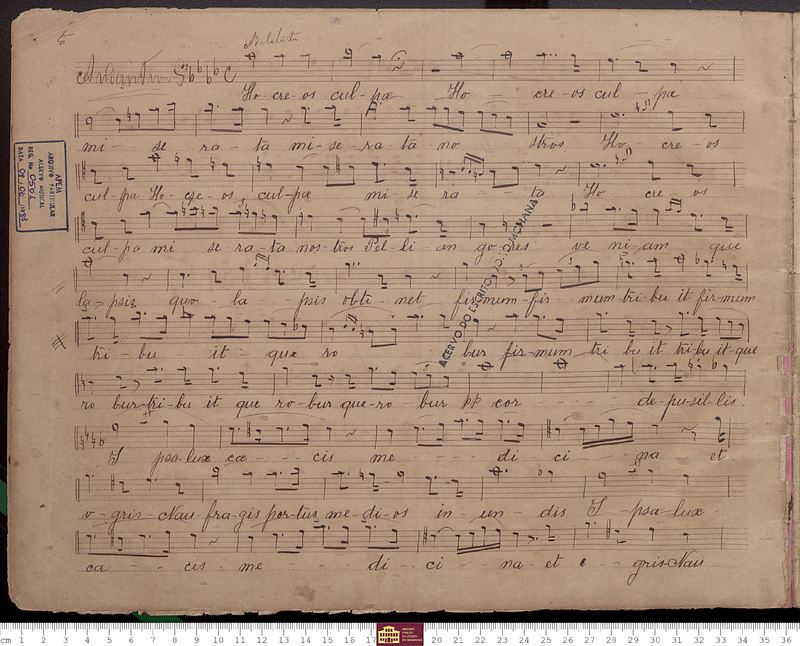 5
Andantino
Ho cre-os cul-pæ Ho cre-os cul-pa
mi-se ra-ta mi-se-ra-ta no stros Ho cre-os
cul-pa Ho-cre-os cul-pæ mi-se ra ta Ho cre os
cul-pa mi se-ra-ta nos-tros Pel-li an go-res ve ni-am que
la-psis quo-la-psis obti-net fir mum-fir-mum tri-bu it fir-mum
tri-bu it-que ro bur fir-mum tri bu it tri-bu it-que
ro bur-tri-bu it que ro-bur que-ro-bur pp cor de-pu-sil-lis
I psa-lux cæ cis me di ci na et
v-gris-Nau-fra-gis por-tus me-di-os in-un-dis I-psa-lux
cæ cis me di ci na-et gris-Nau
APEM
ARQUIVO PARTICULAR
ACERVO MUSICAL
REG. No
DATA
ACERVO DO ESCRITOR
cm 1 2 3 4 5 6 7 8 9 10 11 12 13 14 15 16 17 20 21 22 23 24 25 26 27 28 29 30 31 32 33 34 35 36